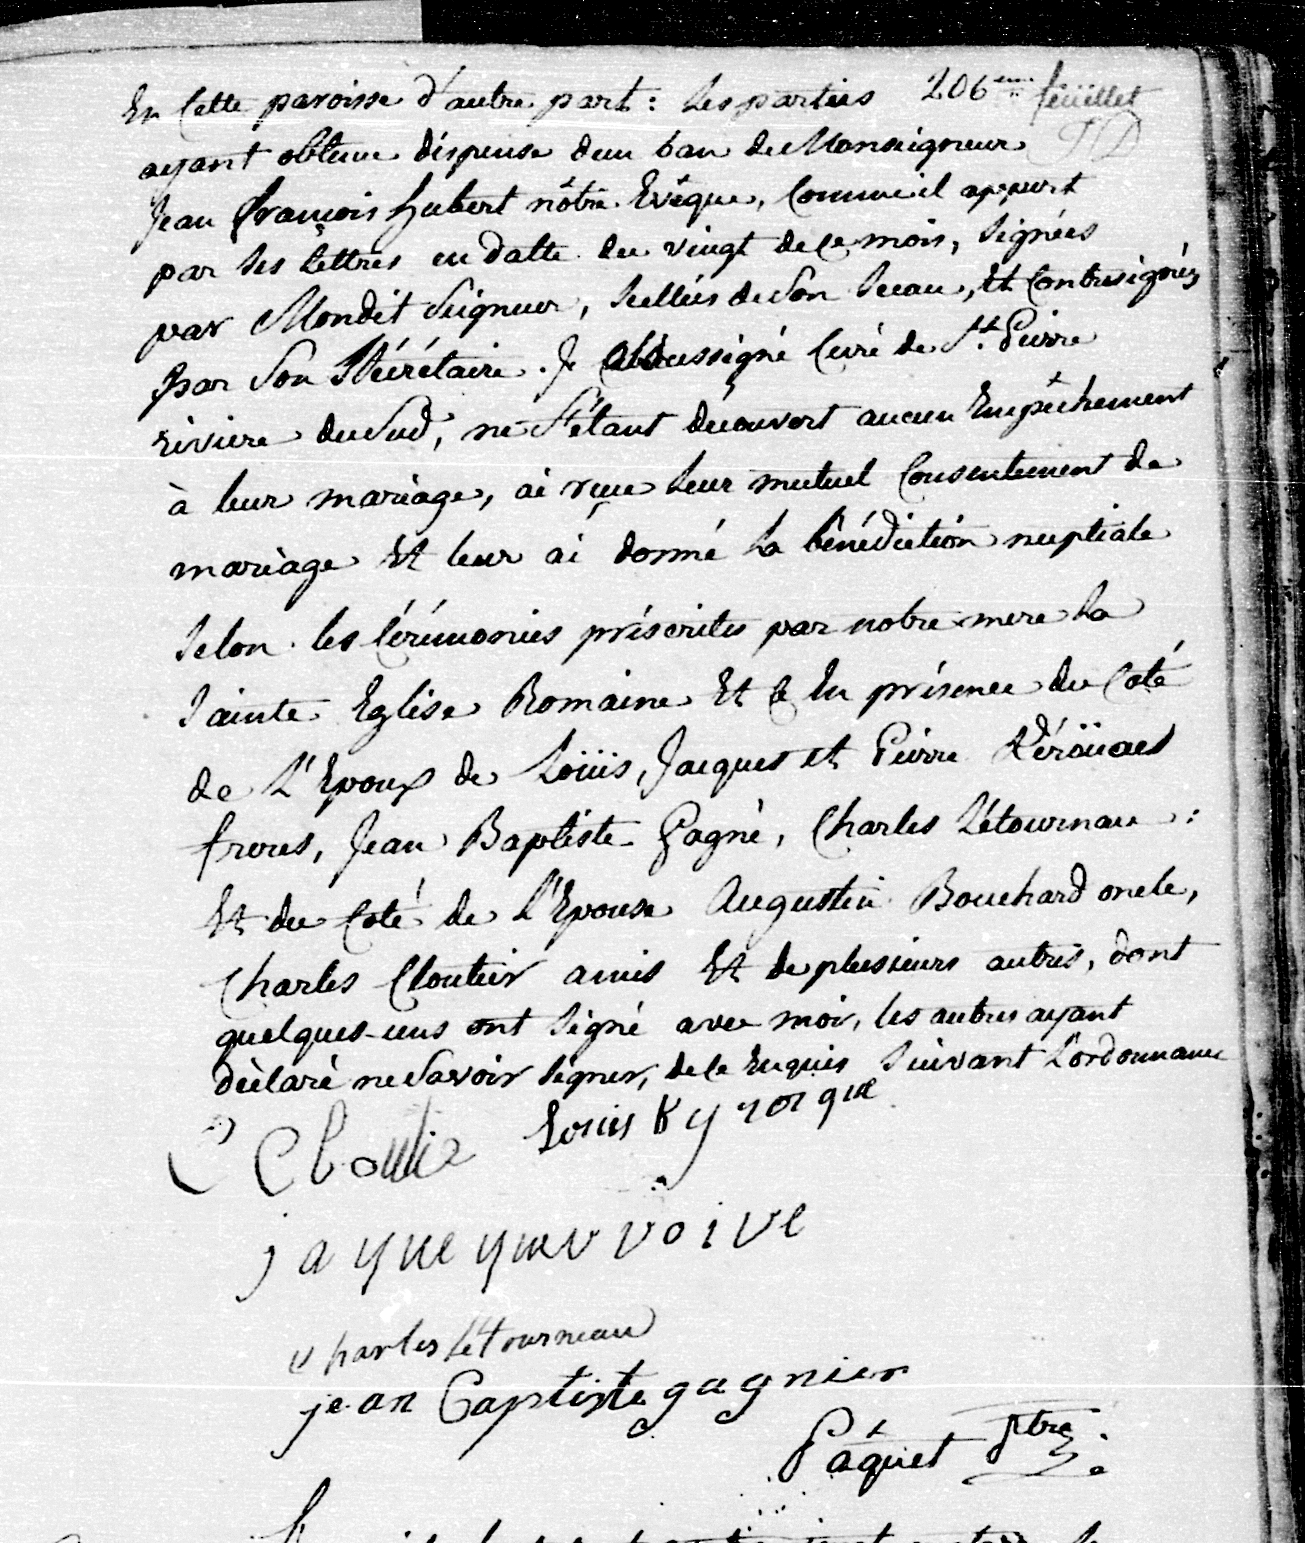 En Cette paroisse d'autre part: les parties 206eme feüillet
ayant obtenu dispense d'un ban de Monseigneur
Jean François hubert nôtre Evêque, Comme il appert
par ses lettres en datte du vingt de ce mois, signées
par Mondit Seigneur, scellées de son sceau, et Contresignées
par son sécrétaire. Je soussigné Curé de St. Pierre
riviere du Sud, ne s'étant découvert aucun Empêchement
à leur mariage, ai reçu leur mutuel Consentement de
mariage et leur ai donné la bénédiction nuptiale
selon les Cérémonies préscrites par notre mere la
Sainte Eglise Romaine et ce En présence du Coté
de L'Epoux de Loüis, Jacques et Pierre Kéroüac
freres, Jean Baptiste Gagné, Charles Létournau:
et du Coté de l'Epouse Augustin Bouchard oncle,
Charles Cloutier amis et de plusieurs autres, dont
quelques-uns ont signé avec moi, les autres ayant
déclaré ne Savoir signer, de ce Enquis suivant L'ordonnance
Louis
charles Létourneau
jean Baptiste gagnier
Pâquet Ptre.